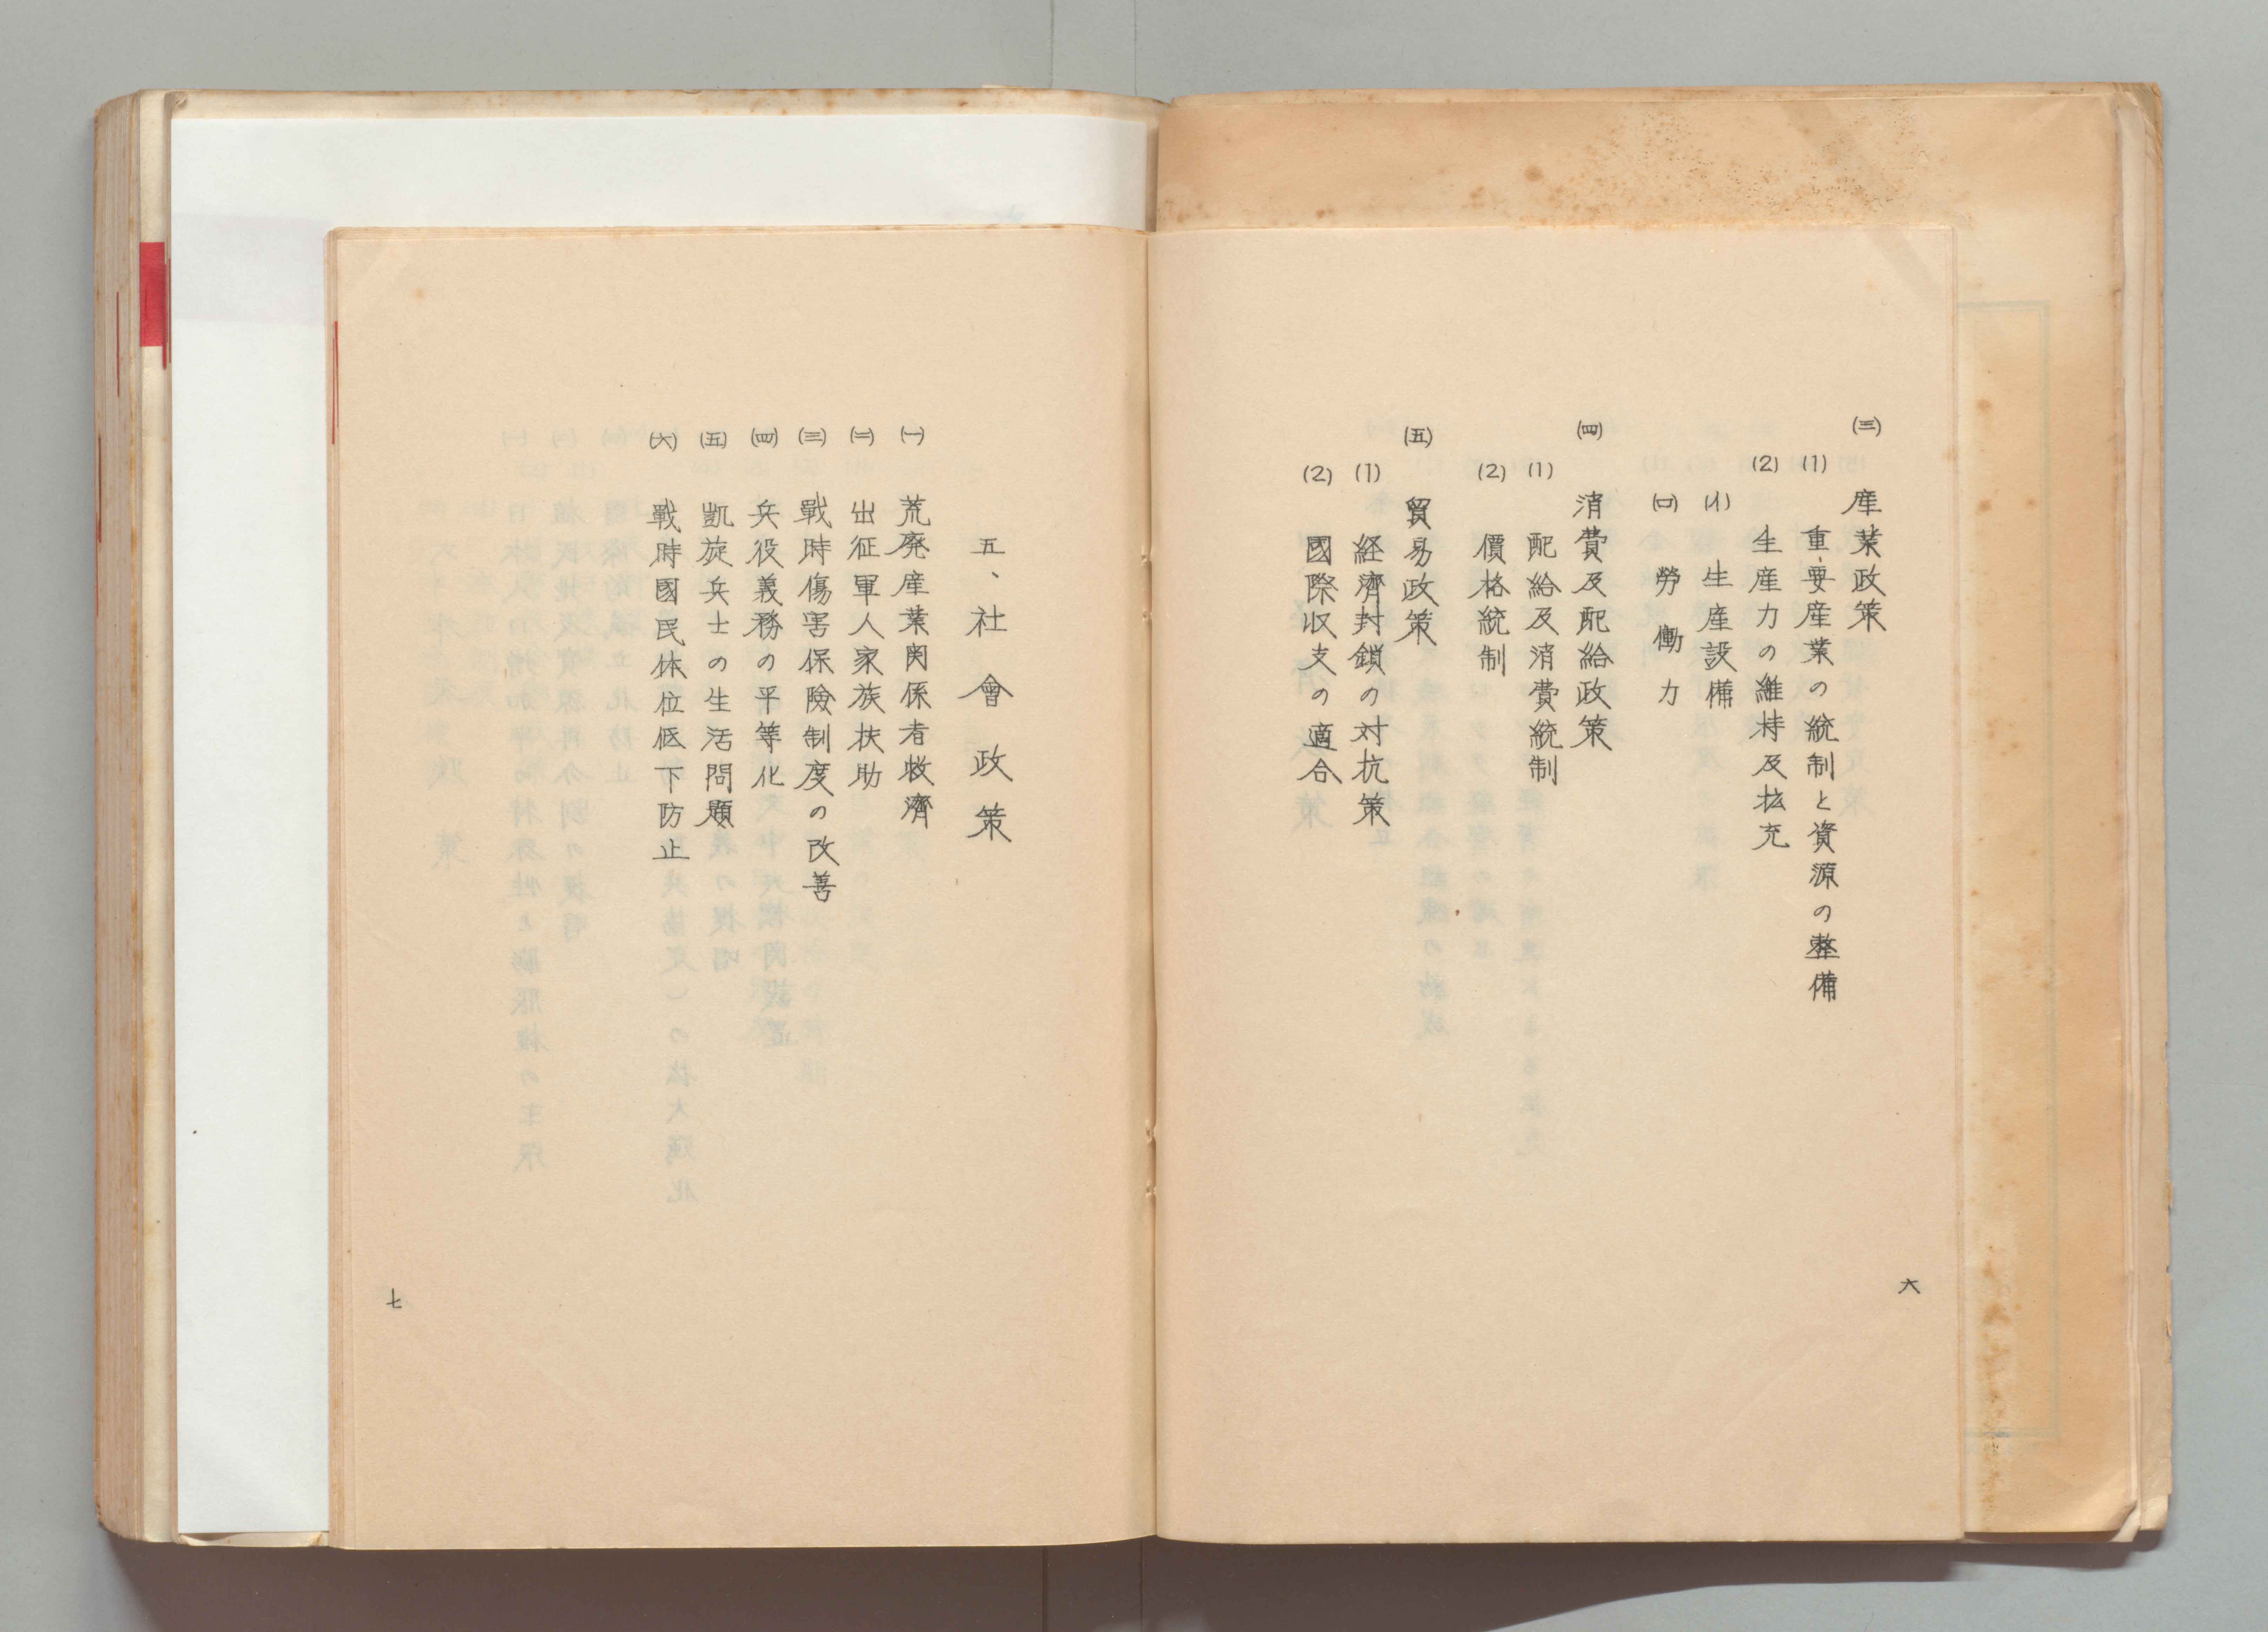 (三) 産業政策
(1) 重要産業の統制と資源の整備
(2) 生産力の維持及拡充
(イ) 生産設備
(ロ) 勞働力
(四) 消費及配給政策
(1) 配給及消費統制
(2) 價格統制
(五) 貿易政策
(1) 経濟封鎖の対抗策
(2) 國際収支の適合
六
五、社會政策
(一) 荒廃産業関係者救濟
(二) 出征軍人家族扶助
(三) 戰時傷害保險制度の改善
(四) 兵役義務の平等化
(五) 凱旋兵士の生活問題
(六) 戰時國民体位低下防止
七